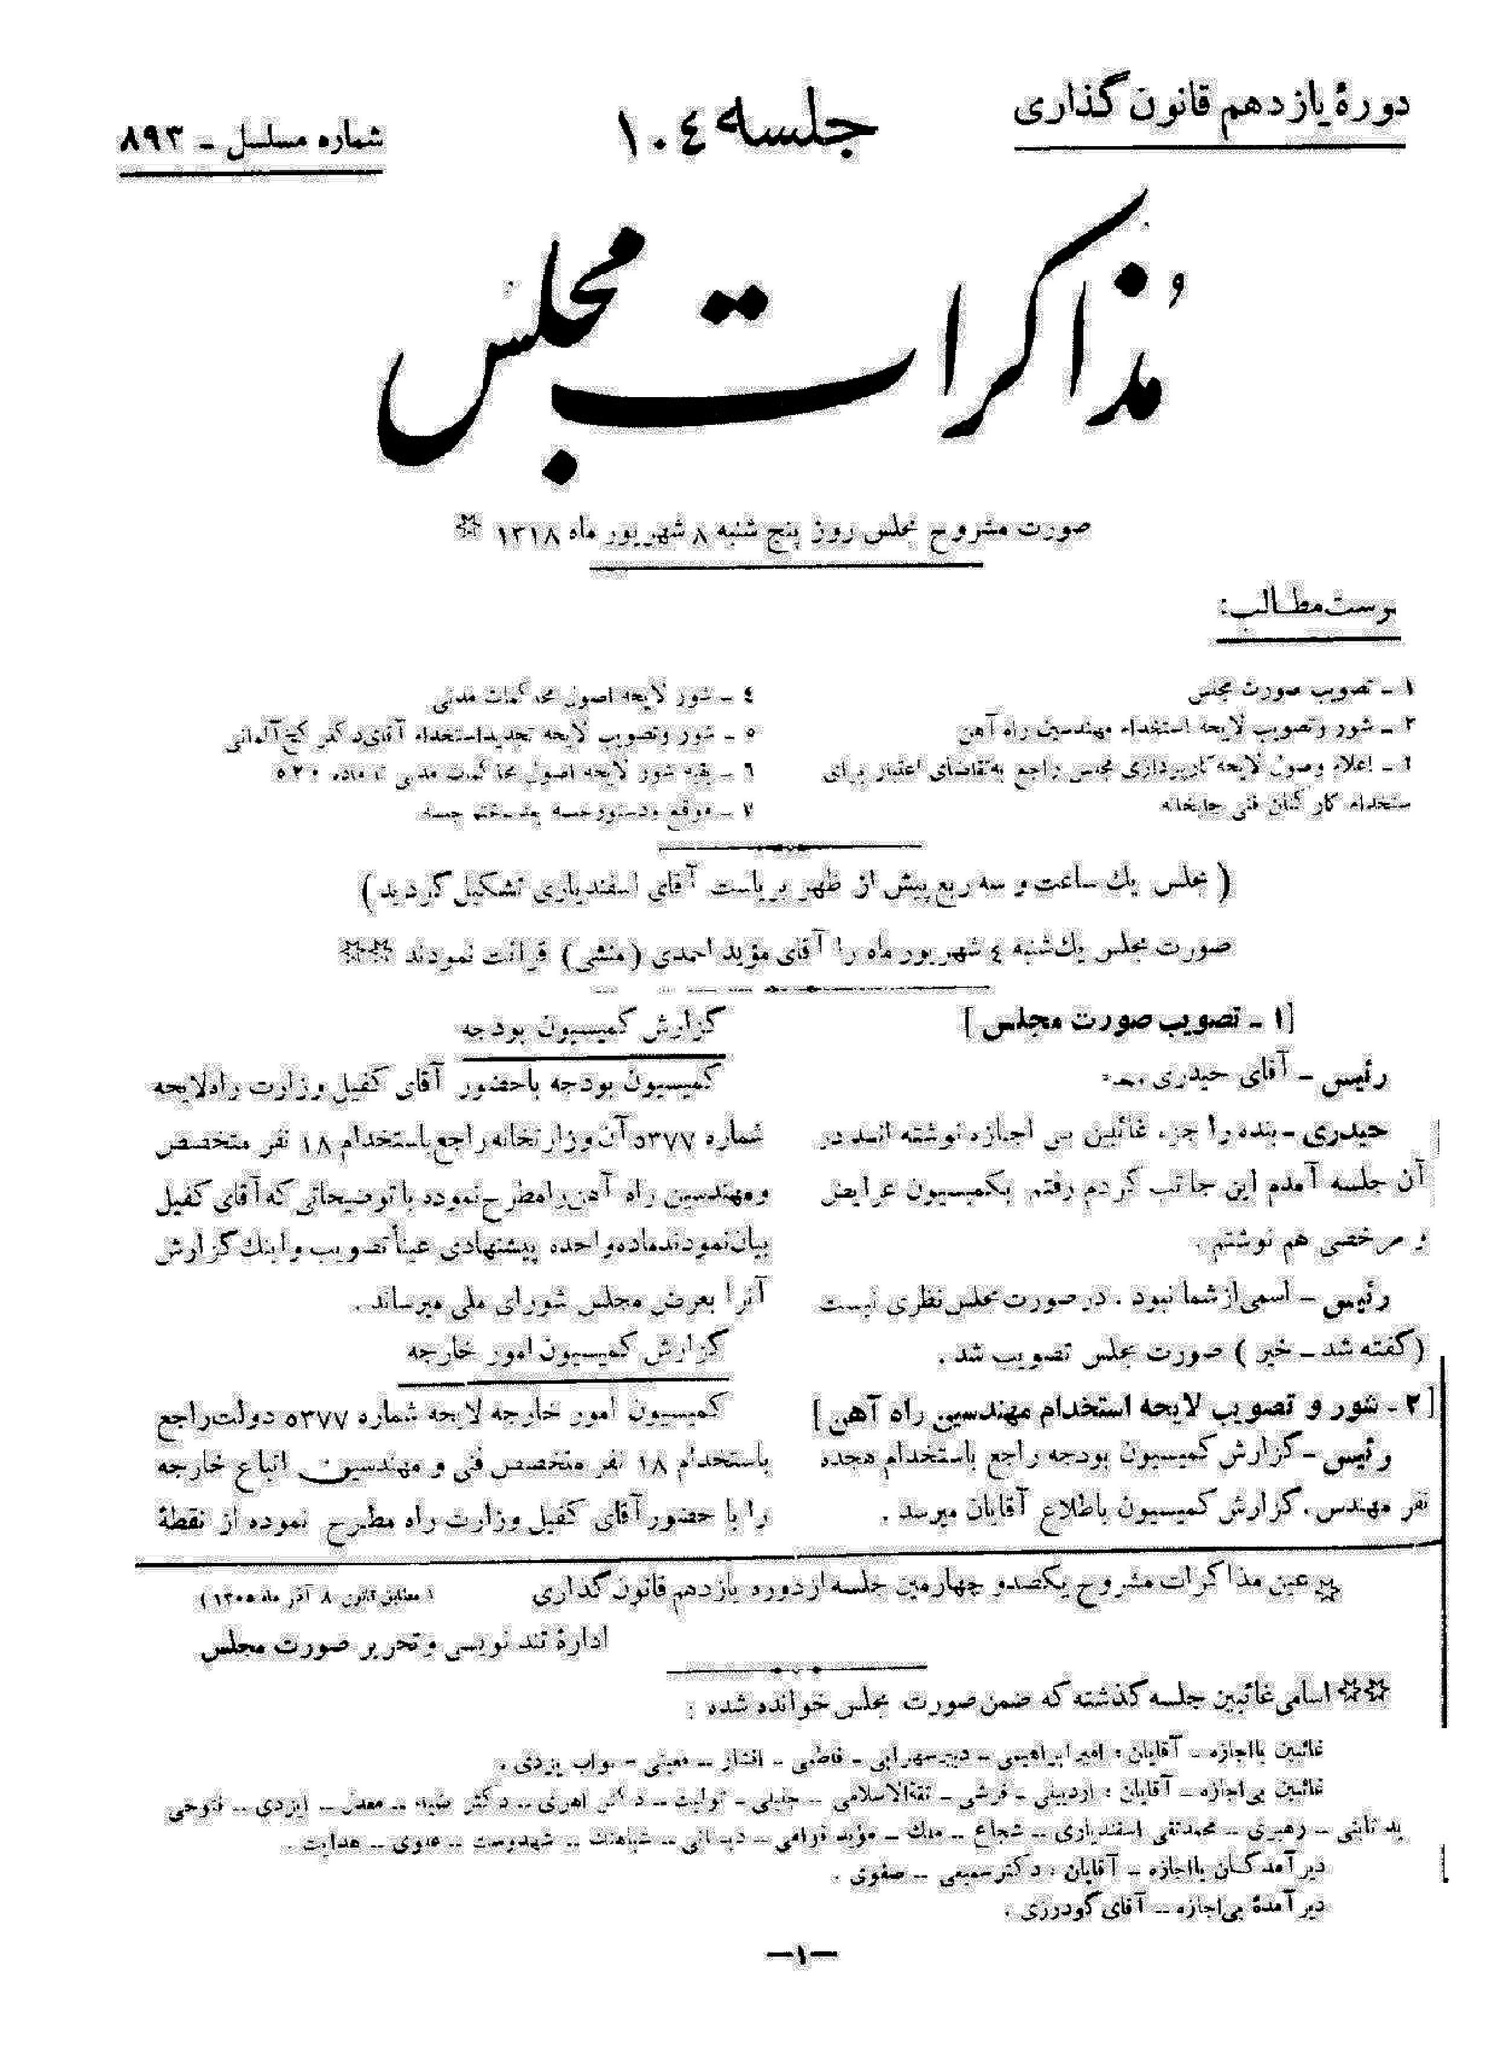 دورهٔ یازدهم قانون گذاری
جلسه ۱۰٤
شماره مسلسل ـ ۸۹۳
مُذاکرات مجلس
صورت مشروح مجلس روز پنج شنبه ۸ شهریور ماه ۱۳۱۸ ☆
مطالب:
۱ ـ تصویب صورت مجلس
۲ ـ شور و تصویب لایحه استخدام مهندسین راه آهن
ـ اعلام وصول لایحه کارپردازی مجلس راجع به تقاضای اعتبار برای
ستخدام کارکنان فنی چاپخانه
٤ ـ شور لایحه اصول محاکمات مدنی
۵ ـ شور و تصویب لایحه تجدید استخدام آقای دکتر کخ آلمانی
٦ ـ بقیه شور لایحه اصول محاکمات مدنی تا ماده ۵۲۰
۷ ـ موقع و دستور جلسه بعد ـ ختم جلسه
( مجلس یك ساعت و سه ربع پیش از ظهر بریاست آقای اسفندیاری تشکیل گردید)
صورت مجلس یك شنبه ٤ شهریور ماه را آقای مؤید احمدی (منشی) قرائت نمودند ☆☆
[۱ ـ تصویب صورت مجلس ]
رئیس ـ آقای حیدری
حیدری ـ بنده را جزء غائبین بی اجازه نوشته اند در
آن جلسه آمدم این جا تب کردم رفتم بکمیسیون عرایض
و مرخصی هم نوشتم .
رئیس ـ اسمی از شما نبود . در صورت مجلس نظری نیست
(گفته شد ـ خیر ) صورت مجلس تصویب شد .
[۲ ـ شور و تصویب لایحه استخدام مهندسین راه آهن ]
رئیس ـ گزارش کمیسیون بودجه راجع باستخدام هجده
نفر مهندس . گزارش کمیسیون باطلاع آقایان میرسد .
گزارش کمیسیون بودجه
کمیسیون بودجه با حضور آقای کفیل وزارت راه لایحه
شماره ۵۳۷۷ آن وزارتخانه راجع باستخدام ۱۸ نفر متخصص
و مهندسین راه آهن را مطرح نموده با توضیحاتی که آقای کفیل
بیان نمودند ماده واحده پیشنهادی عیناً تصویب و اینك گزارش
آنرا بعرض مجلس شورای ملی میرساند .
گزارش کمیسیون امور خارجه
کمیسیون امور خارجه لایحه شماره ۵۳۷۷ دولت راجع
باستخدام ۱۸ نفر متخصص فنی و مهندسین اتباع خارجه
را با حضور آقای کفیل وزارت راه مطرح نموده از نقطهٔ
☆ عین مذاکرات مشروح یکصدو چهارمین جلسه از دوره یازدهم قانون گذاری
( مطابق قانون ۸ آذر ماه ۱۳۰۵)
ادارهٔ تند نویسی و تحریر صورت مجلس
☆☆ اسامی غائبین جلسه گذشته که ضمن صورت مجلس خوانده شده :
غائبین با اجازه ـ آقایان : امیر ابراهیمی ـ دبیر سهرابی ـ فاطمی ـ افشار ـ معینی ـ نواب یزدی .
غائبین بی اجازه ـ آقایان : اردبیلی ـ قرشی ـ ثقةالاسلامی ـ جلیلی ـ تولیت ـ دکتر اهری ـ دکتر ضیاء ـ معدل ـ ایزدی ـ فتوحی
نائینی ـ رهبری ـ محمدتقی اسفندیاری ـ شجاع ـ ملك ـ مؤید قوامی ـ دبستانی ـ شباهنك ـ شهدوست ـ علوی ـ هدایت .
دیر آمدگان با اجازه ـ آقایان : دکتر سمیعی ـ صفوی .
دیر آمدهٔ بی اجازه ـ آقای گودرزی .
ـ۱ـ